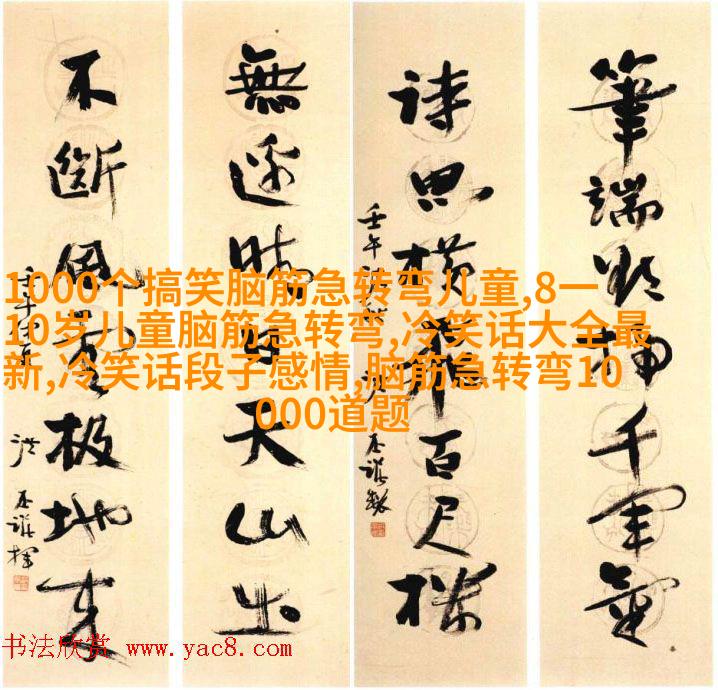 1000个搞笑脑筋急转弯儿童,8一
10岁儿童脑筋急转弯,冷笑话大全最
新,冷笑话段子感情,脑筋急转弯10
000道题
筆端掃千軍氣
詩思橫飛百尺樓
壬午
無邊晴雪天山出
不斷風雲極地來
洪丕謨揮
书法欣赏 www.yac8.com